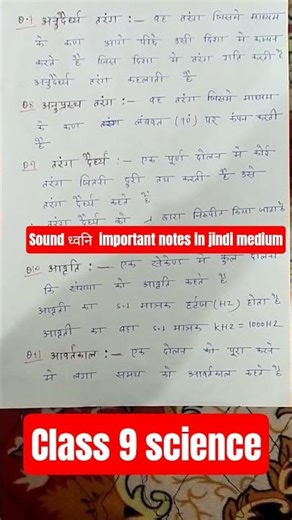 Q.7 अनुदैर्ध्य तरंग :- वह तरंग जिसमे माध्यम
के कण आगे पीछे उसी दिशा मे कम्पन
करते है जिस दिशा मे तरंग गति करती है
अनुदैर्ध्य तरंग कहलाती है
Q8 अनुप्रस्थ तरंग :- वह तरंग जिसमे माध्यम
के कण तरंग लंबवत (90°) पर कंपन करती
है
Q.9 तरंग दैर्ध्य :- एक पूर्ण दोलन मे कोई
तरंग जितनी दुरी तय करती है उसे
तरंग दैर्ध्य कहते है
तरंग दैर्ध्य को λ द्वारा निरूपित किया जाता है
Sound ध्वनि important notes in jindi medium
Q10 आवृति :- एक सेकेण्ड मे कुल दोलनो
कि संख्या को आवृति कहते है
आवृती का S.I मात्रक हर्ट्ज (HZ) होता है
आवृती का बड़ा S.I मात्रक KHZ = 1000HZ
Q.11 आवर्तकाल :- एक दोलन को पूरा करने
मे लगा समय को आवर्तकाल कहते है
Class 9 science